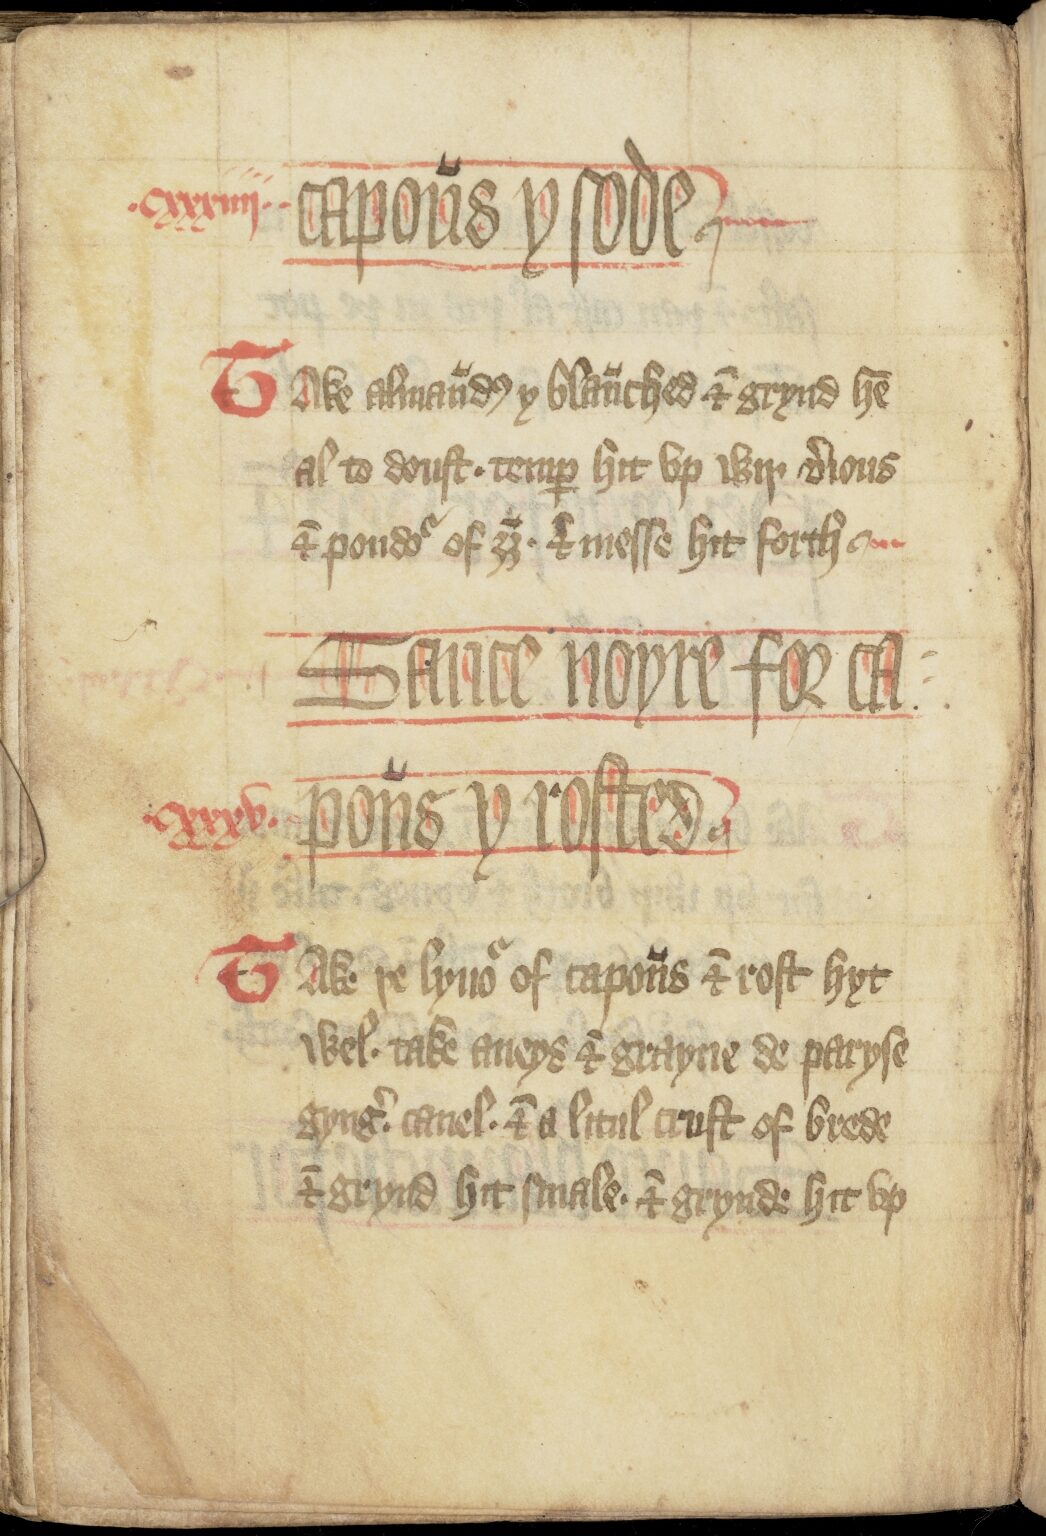 .cxxxiiij. capoũs y sode
Take almaũdꝭ y blaũched ⁊̄ grynd hē
al to doust. temꝑ hit vp wiþ. v̾ious
⁊̄ poudoᷣ of ⁊̄ messe hit forth
Sauce noyre for ca
.cxxxv. poũs y rosted.
Take þe lyuoᷣ of capoũs ⁊̄ rost hyt
wel. take aneys ⁊̄ grayne de paryse
gyng̾. canel. ⁊̄ a litul crust of brede
⁊̄ grynd hit smale. ⁊̄ grynde hit vp